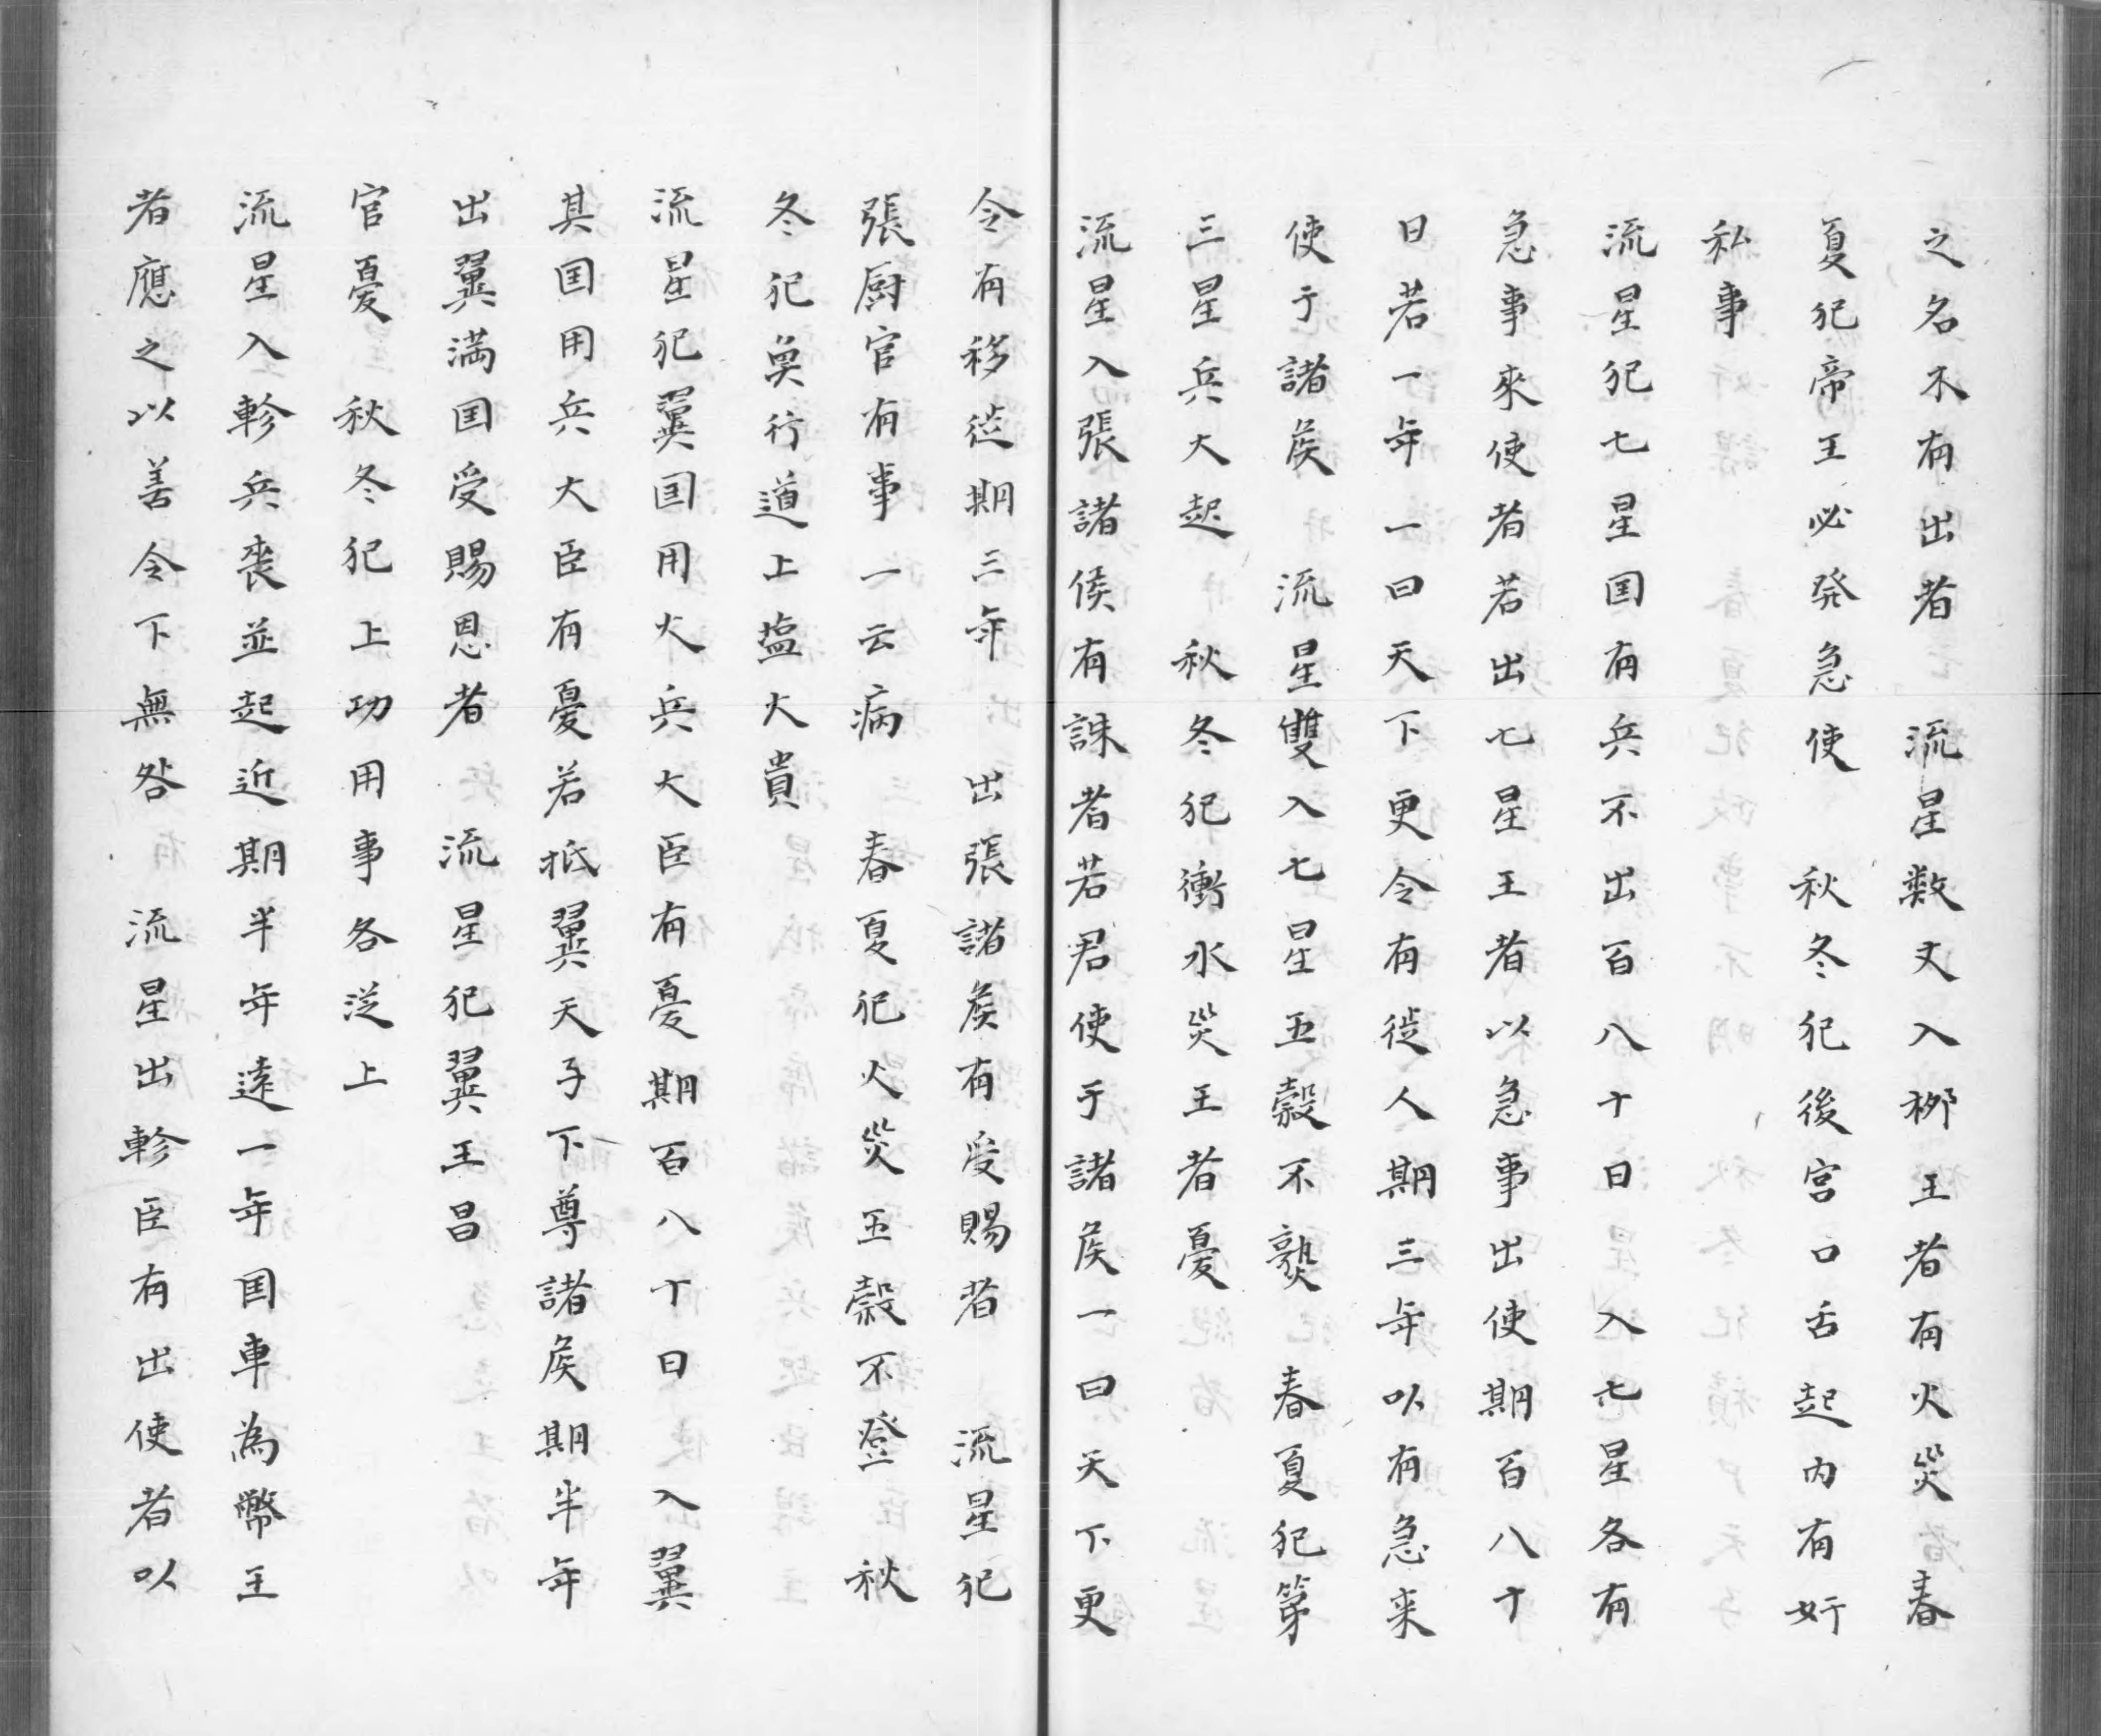 之名木有出者　流星数丈入栁王者有火災　春
夏犯帝王必発急使　秋冬犯後宮口舌起内有奸
私事
流星犯七星国有兵不出百八十日　入七星各有
急事來使者若出七星王者以急事出使期百八十
日若一年一曰天下更令有徙人期三年以有急来
使于諸矦　流星雙入七星五穀不熟　春夏犯第
三星兵大起　秋冬犯衝水災王者憂
流星入張諸侯有誅者若君使于諸矦一曰天下更
令有移徙期三年　出張諸矦有受賜者　流星犯
張厨官有事一云病　春夏犯火災五穀不登　秋
冬犯奥行道上塩大貴
流星犯翼国用大兵大臣有憂期百八十日　入翼
其国用兵大臣有憂若抵翼天子下尊諸矦期半年
出翼満国受賜恩者　流星犯翼王昌
官憂　秋冬犯上功用事各泛上
流星入軫兵喪並起近期半年遠一年国車為幣王
者應之以善令下無咎　流星出軫臣有出使者以